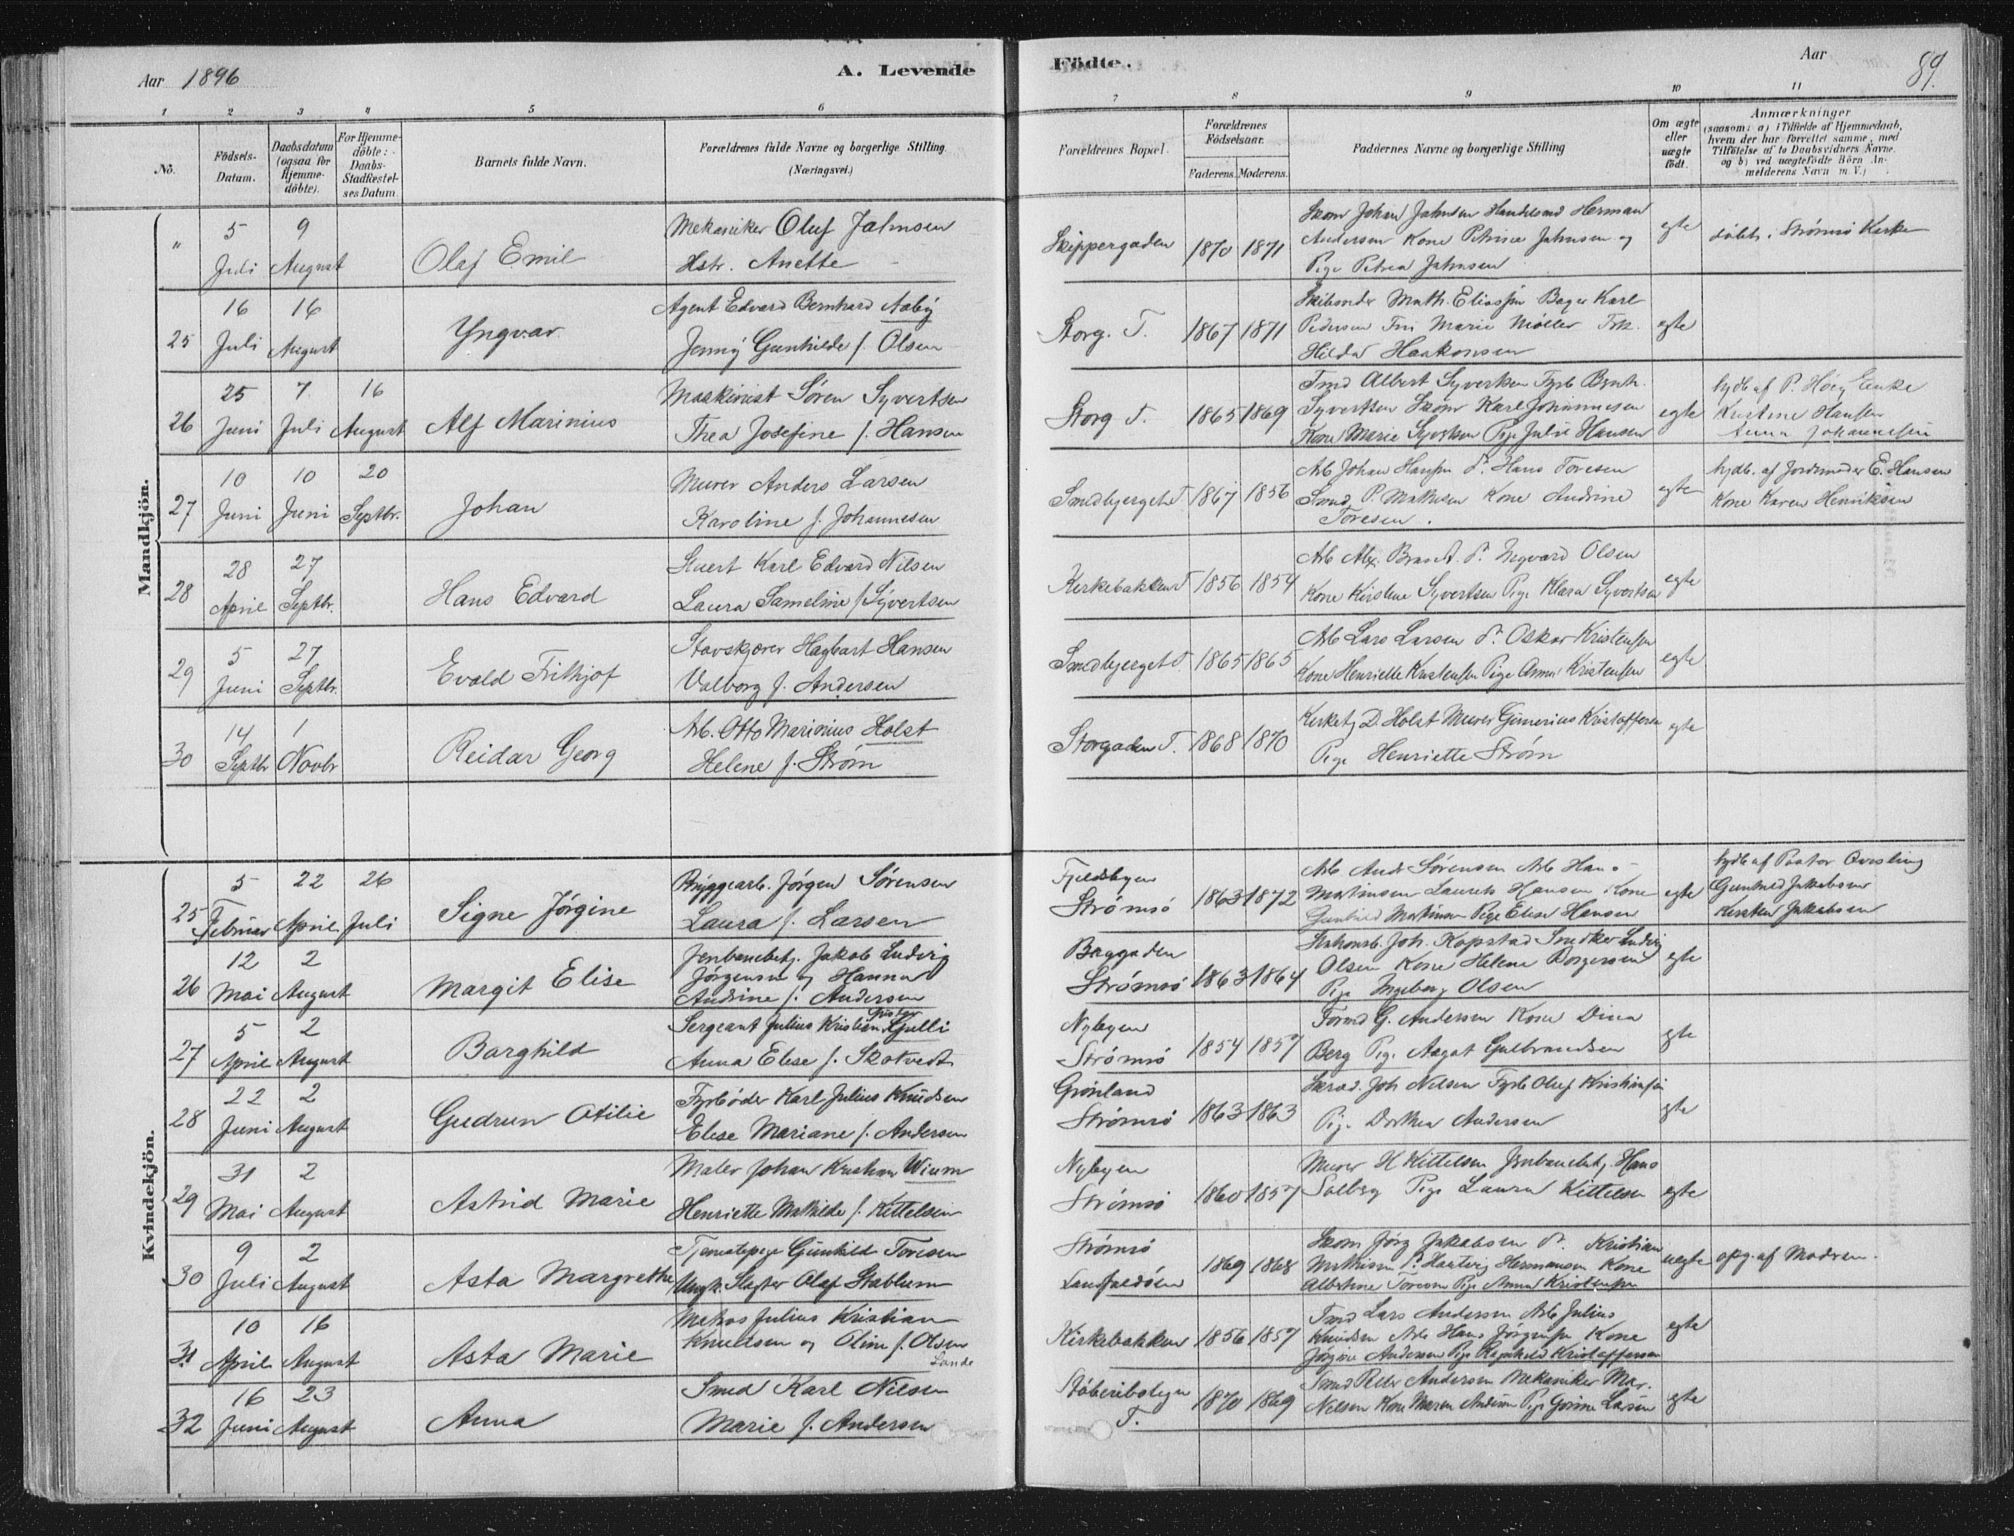 Aar 1896
A. Levende
Födte.
Aar
89.
1 2 3 4 5 6 7 8 9 10 11
No.
Födsels-
Datum.
Daabsdatum
(ogsaa for
Hjemme-
döbte).
For Hjemme-
döbte:
Daabs-
Stadfæstel-
ses Datum
Barnets fulde Navn.
Forældrenes fulde Navne og borgerlige Stilling.
(Næringsvei.)
Forældrenes Bopæl.
Forældrenes
Födselsaar.
Faderens. Moderens.
Faddernes Navne og borgerlige Stilling
Om ægte
eller
uægte
födt.
Anmærkninger
(saasom: a) i Tilfælde af Hjemmedaab,
hvem der har forrettet samme, med
Tilföielse af to Daabsvidners Navne.
og b) ved uægtefödte Börn An-
melderens Navn m. V.)
Mandkjön.
" 5 Juli 9 August
Olaf Emil
Mekaniker Oluf Jahnsen
Hstr. Anette
Skippergaden 1870 1871
Skom Johan Jahnsen Handelsmd Herman
Andersen Kone Petrine Jahnsen og
Pige Petrea Jahnsen
egte
döbt i Strömsö Kirke
25 16 Juli 16 August
Yngvar
Agent Edvard Bernhard Aaby
Jenny Gunhilde f. Olsen
Storg. T. 1867 1871
Math. Eliassen Bager Karl
Pedersen Fru Marie Möller Frk.
Hilda Haakonsen
egte
26 25 Juni 7 Juli 16 August
Alf Marinius
Maskinist Sören Syvertsen
Thea Josefine f. Hansen
Storg T. 1865 1869
Tmd Albert Syvertsen Fyrb Bernh.
Syvertsen Skom Karl Johannesen
Kone Marie Syvertsen Pige Julie Hansen
egte
hjdb af P. Höeg Enke
Kirstine Hansen
Anna Johannesen
27 10 Juni 10 Juni 20 Septbr.
Johan
Murer Anders Larsen
Karoline f. Johannesen
Smedbjerget T 1867 1856
Arb Johan Hansen P. Hans Toresen
Smed P. Mathisen Kone Andrine
Toresen.
egte
hjdb. af Jordemoder E. Hansen
Kone Karen Henriksen
28 28 April 27 Septbr.
Hans Edvard
Stuert Karl Edvard Nilsen
Laura Sameline f. Syvertsen
Kirkebakken T 1856 1854
Arb Alex. Braset. P. Ingvard Olsen
Kone Kirstine Syvertsen Pige Klara Syvertsen
egte
29 5 Juni 27 Septbr.
Evald Frithjof
Stavskjærer Hagbart Hansen
Valborg f. Andersen
Smedbjerget T 1865 1865
Arb Lars Larsen P. Oskar Kristensen
Kone Henriette Kristensen Pige Anna Kristensen
egte
30 14 Septbr 1 Novbr
Reidar Georg
Arb. Otto Marinius Holst
Helene f. Ström
Storgaden T. 1868 1870
Kirketj D. Holst Murer Gunerius Kristoffersen
Pige Henriette Ström
egte
Kvindekjön.
25 5 Februar 22 April 26 Juli
Signe Jörgine
Bryggearb. Jörgen Sörensen
Laura f. Larsen
Fjeldbyen
Strömsö 1863 1872
Arb Andr Sörensen Arb Hans
Martinsen Laurits Hansen Kone
Gunhild Martinsen Pige Elise Hansen
egte
hjdb af Pastor Qvisling
Gunhild Jakobsen
Kirsten Jakobsen
26 12 Mai 2 August
Margit Elise
Jernbanebetj. Jakob Ludvig
Jörgensen og Hanna
Andrine f. Andersen
Baggaden
Strömsö 1863 1864
Stationsb. Joh. Kopstad Snedker Ludvig
Olsen Kone Helene Borgersen
Pige Ingeborg Olsen
egte
27 5 April 2 August
Borghild
Sergeant Julius Kristian Gjulli
Anna Elise f. Skotvedt
Nybyen
Strömsö 1854 1857
Formd G. Andersen Kone Dina
Berg Pige Aagot Gulbrandsen
egte
28 22 Juni 2 August
Gudrun Otilie
Fyrböder Karl Julius Knudsen
Elise Mariane f. Andersen
Grönland
Strömsö 1863 1863
Skræd. Joh Nilsen Fyrb Oluf Kristiansen
Pige Dorthea Andersen
egte
29 31 Mai 2 August
Astrid Marie
Maler Johan Kristian Wium
Henriette Mathilde f. Kittelsen
Nybyen
Strömsö 1860 1857
Murer H Kittelsen Jernbanebetj Hans
Solberg Pige Laura Kittelsen
egte
30 9 Juli 2 August
Asta Margrethe
Tjenestepige Gunhild Toresen
Ungk. Slagter Olaf Stablum
Strömsö
Landfaldöen 1869 1868
Skom Jörg Jakobsen P. Kristian
Mathisen P. Hartvig Hermansen Kone
Albertine Toresen Pige Anna Kristensen
uegte
opg. af Modren.
31 10 April 16 August
Asta Marie
Matros Julius Kristian
Knudsen og Oline f. Olsen
Lande
Kirkebakken 1856 1857
Tmd Lars Andersen Arb Julius
Knudsen Arb Hans Jörgensen Kone
Jörgine Andersen Pige Ragnhild Kristoffersen
egte
32 16 Juni 23 August
Anna
Smed Karl Nilsen
Marie f. Andersen
Stöberibakyen
T. 1870 1869
Smed Peder Andersen Mekaniker Mar.
Nilsen Kone Maren Andersen Pige Gorine Larsen
egte